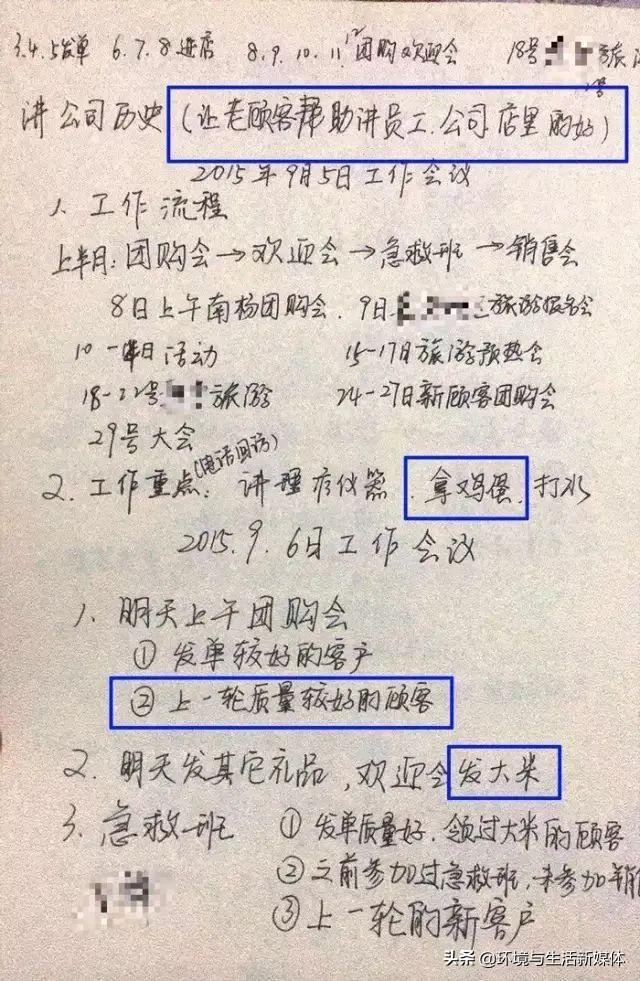 3.4.5发单 6.7.8进店 8.9.10.11.12团购欢迎会 18号 旅游
2号
讲公司历史(让老顾客帮助讲员工.公司店里的好)
2015年9月5日工作会议
1、工作流程
上半月:团购会→欢迎会→急救班→销售会
8日上午南杨团购会.9日 旅游报名会
10-14日活动 15-17日旅游预热会
18-22号 旅游 24-27日新顾客团购会
29号大会
(电话回访)
2、工作重点:讲理疗仪器.拿鸡蛋.打水
2015.9.6日工作会议
1、明天上午团购会
①发单较好的客户
②上一轮质量较好的顾客
2、明天发其它礼品,欢迎会发大米
3、急救班 ①发单质量好.领过大米的顾客
②之前参加过急救班,未参加销
③上一轮的新客户
头条 @环境与生活新媒体